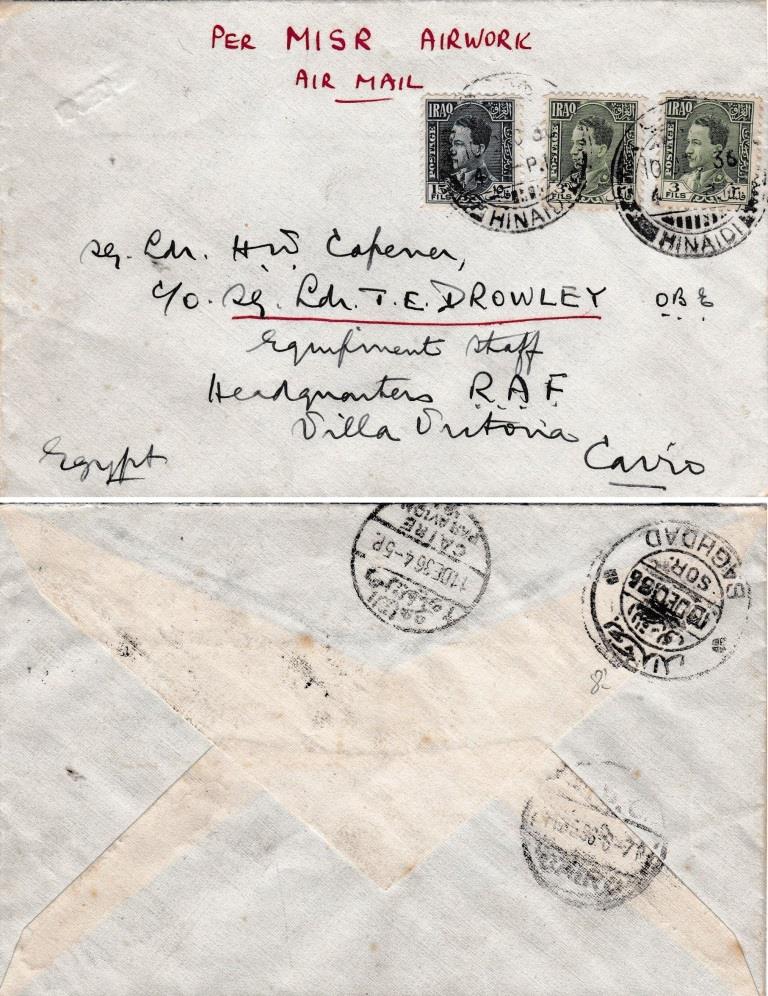 PER MISR AIRWORK
AIR MAIL
IRAQ العراق
POSTAGE
15 FILS ١٥
IRAQ العراق
POSTAGE
3 FILS
IRAQ العراق
POSTAGE
3 FILS
HINAIDI
10 36
HINAIDI
Sq. Ldr. H W Capener,
c/o. Sq. Ldr. T. E. DROWLEY OBE
Equipment Staff
Headquarters R.A.F.
Villa Victoria
Cairo
Egypt
CAIRE
PAR AVION
11 DE 36 4-5 P.
القاهرة
BAGHDAD
SORT
10 DEC 36